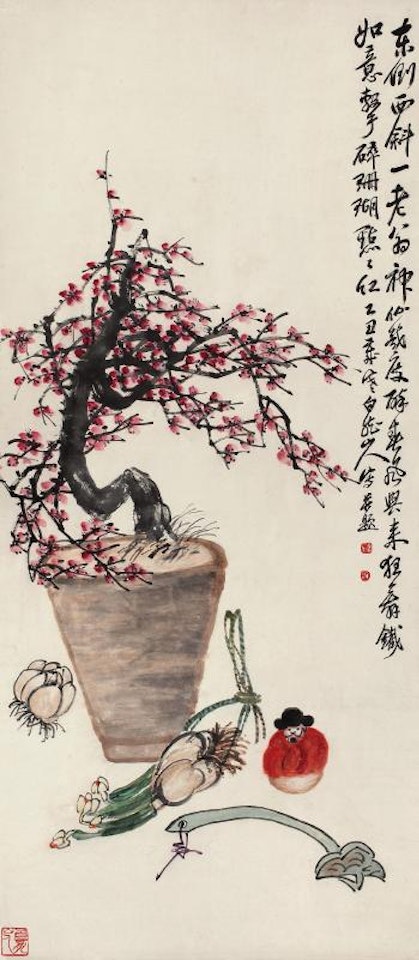 東倒西斜一老翁神仙幾度醉春風興來狂舞鐵
如意擊碎珊瑚點點紅乙丑白龍山人題